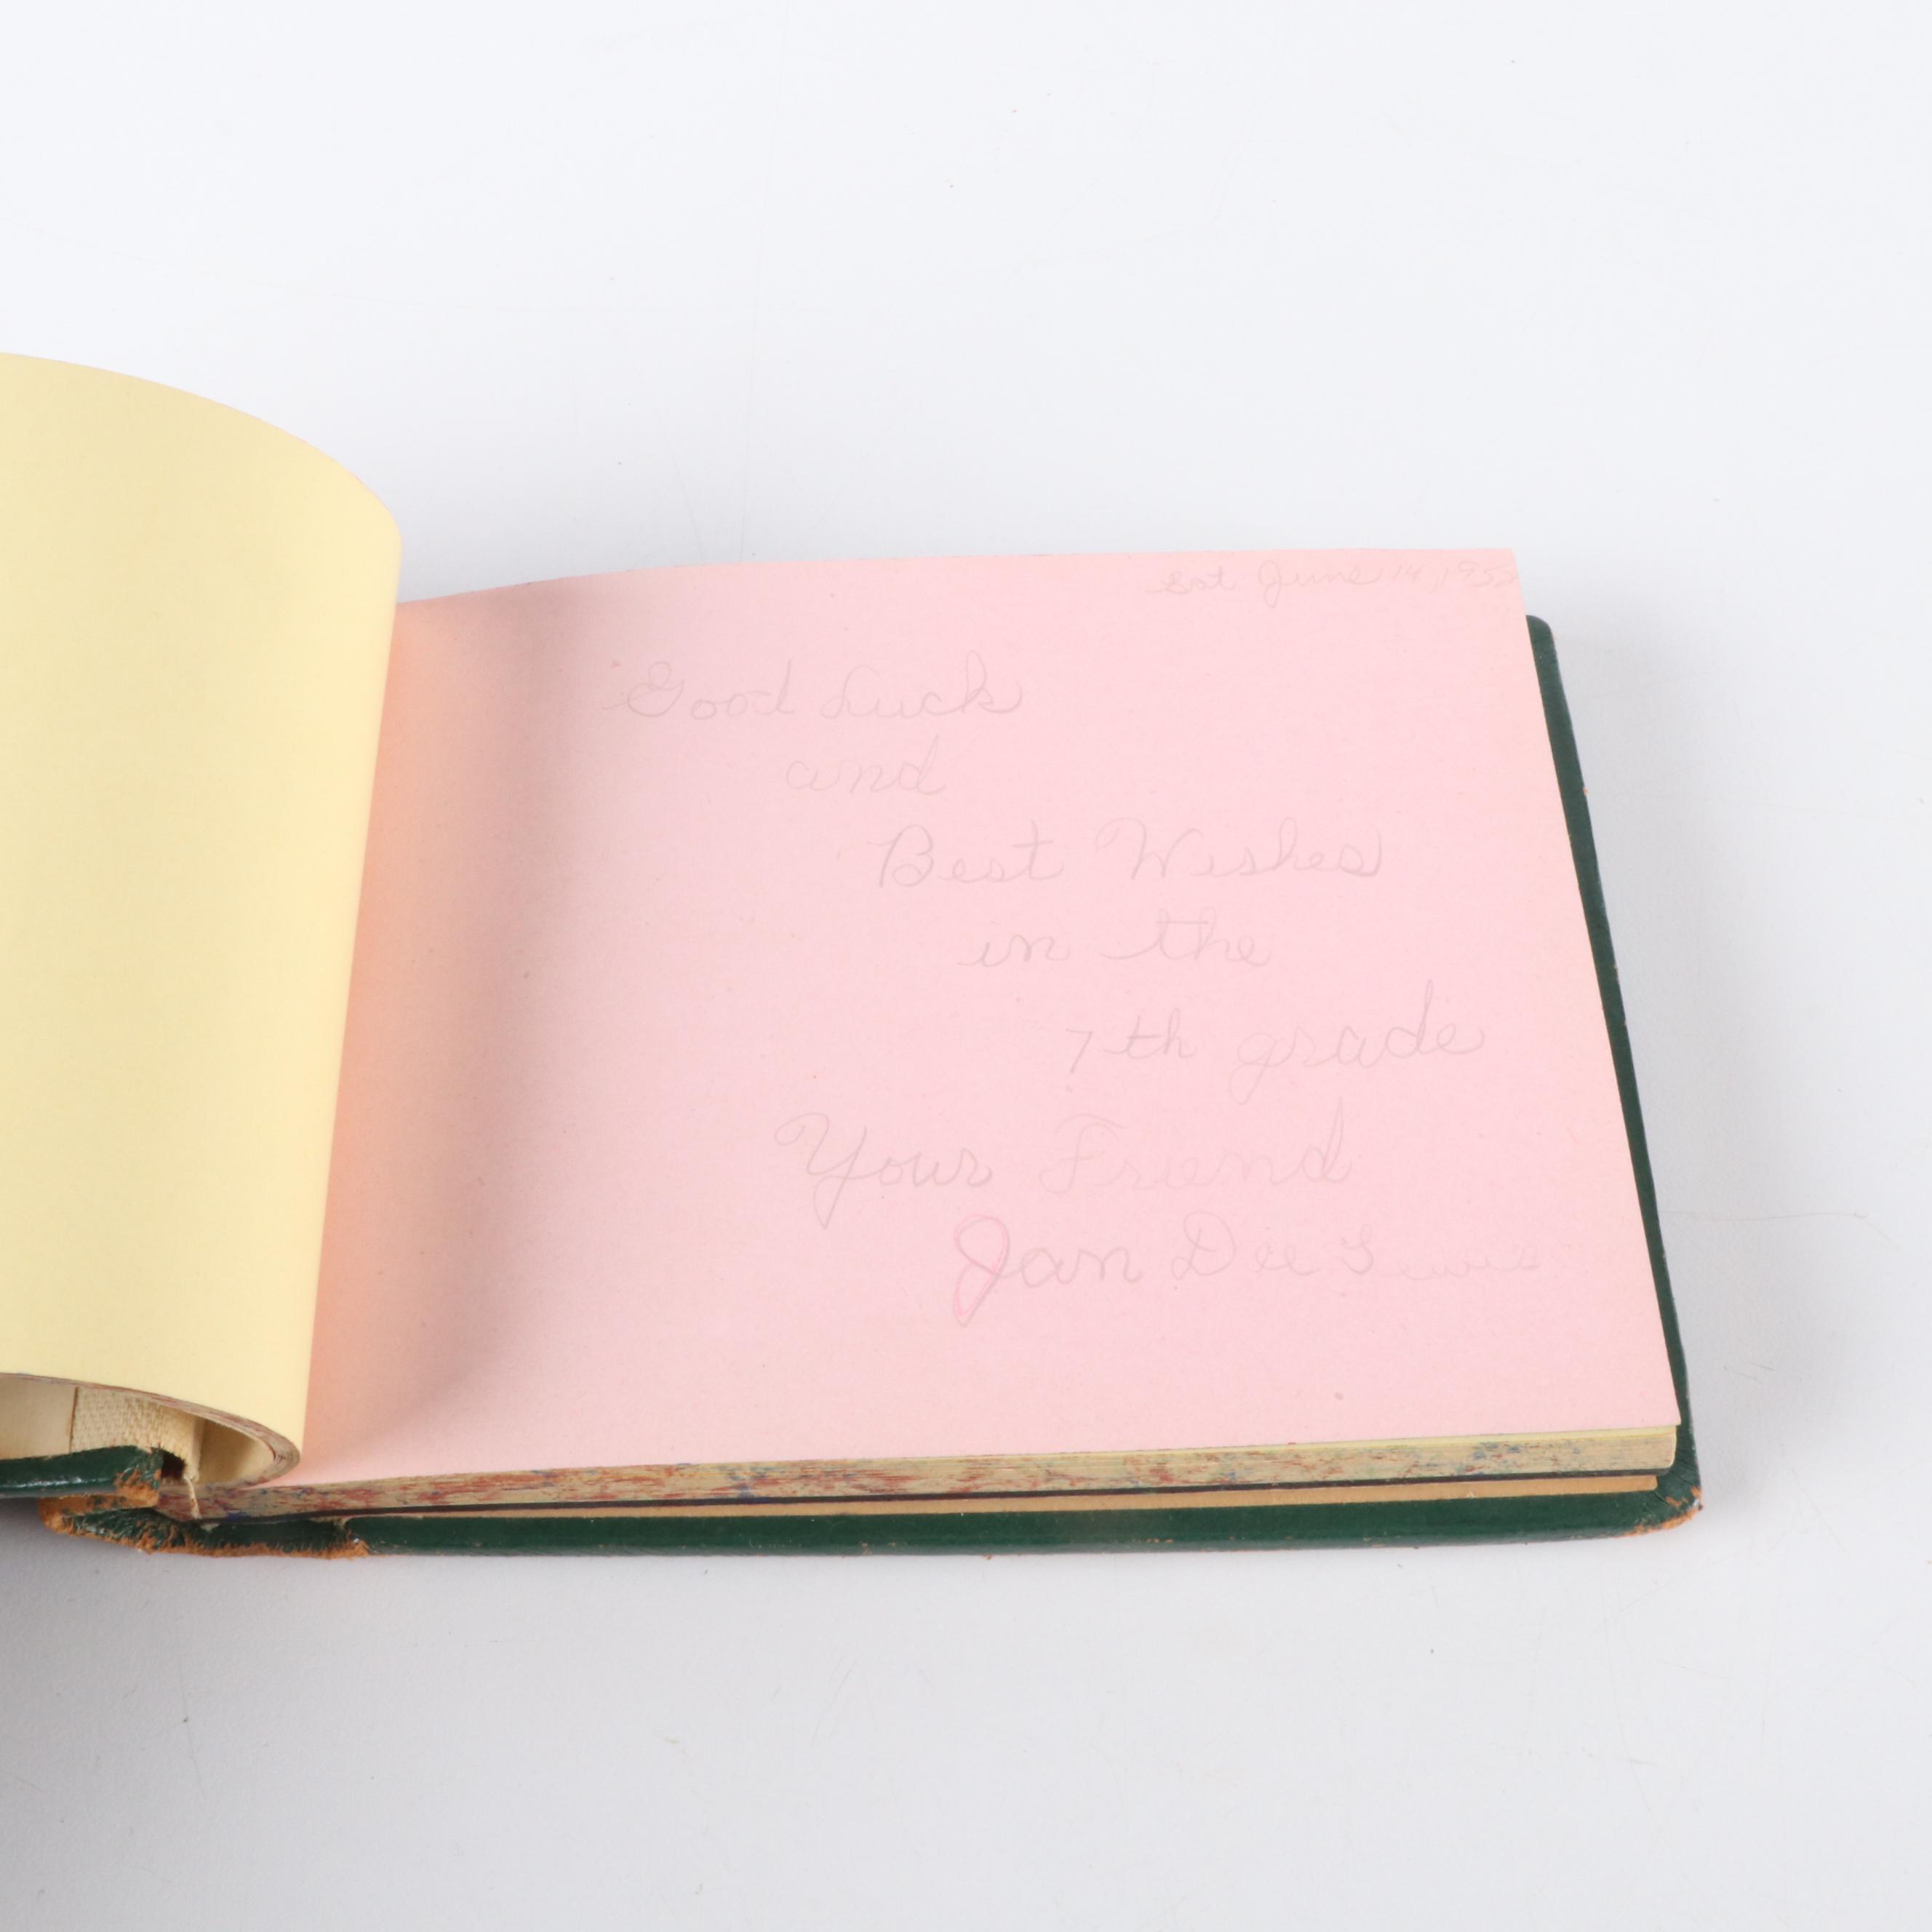 Sat June 14, 1952
Good Luck
and
Best Wishes
in the
7th grade
Your Friend
Jan Dee Lewis